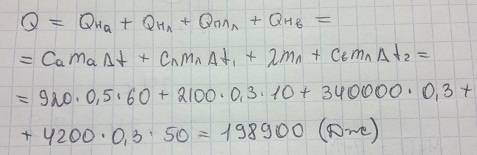 Q = Qна + Qнл + Qплл + Qнв =
= CаmаΔt + CлmлΔt₁ + λmл + CвmлΔt₂ =
= 920 · 0,5 · 60 + 2100 · 0,3 · 10 + 340000 · 0,3 +
+ 4200 · 0,3 · 50 = 198900 (Дж)